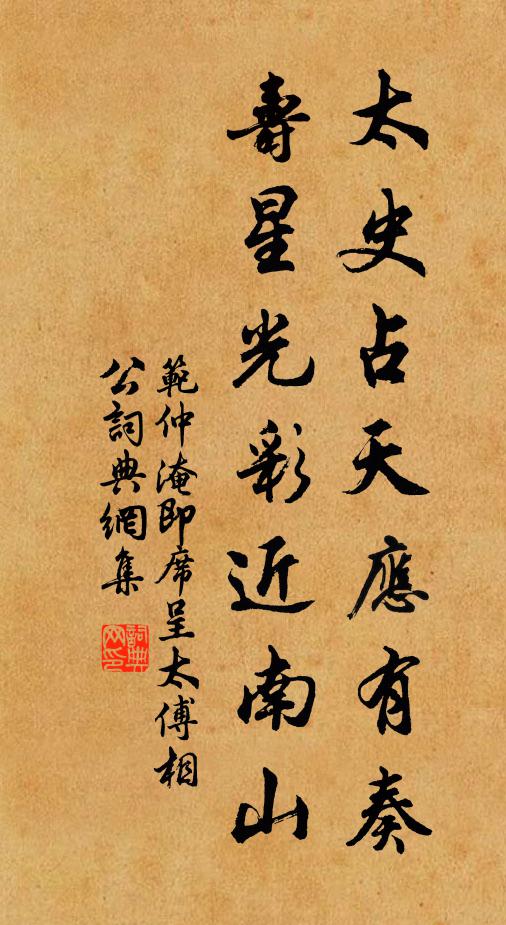 太史占天應有奏
壽星光彩近南山
範仲淹即席呈太傅相
公詞典網集
詞典網印